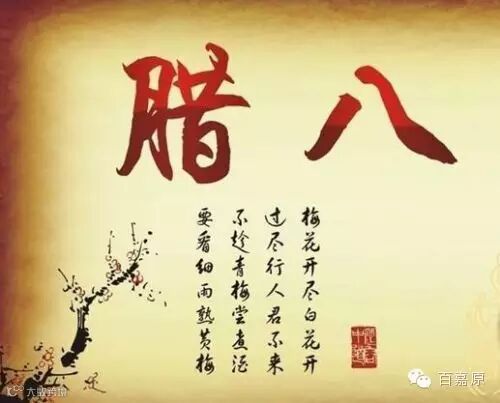 腊八
梅花开尽白花开
过尽行人君不来
不趁青梅尝煮酒
要看细雨熟黄梅
百嘉原
大数跨境